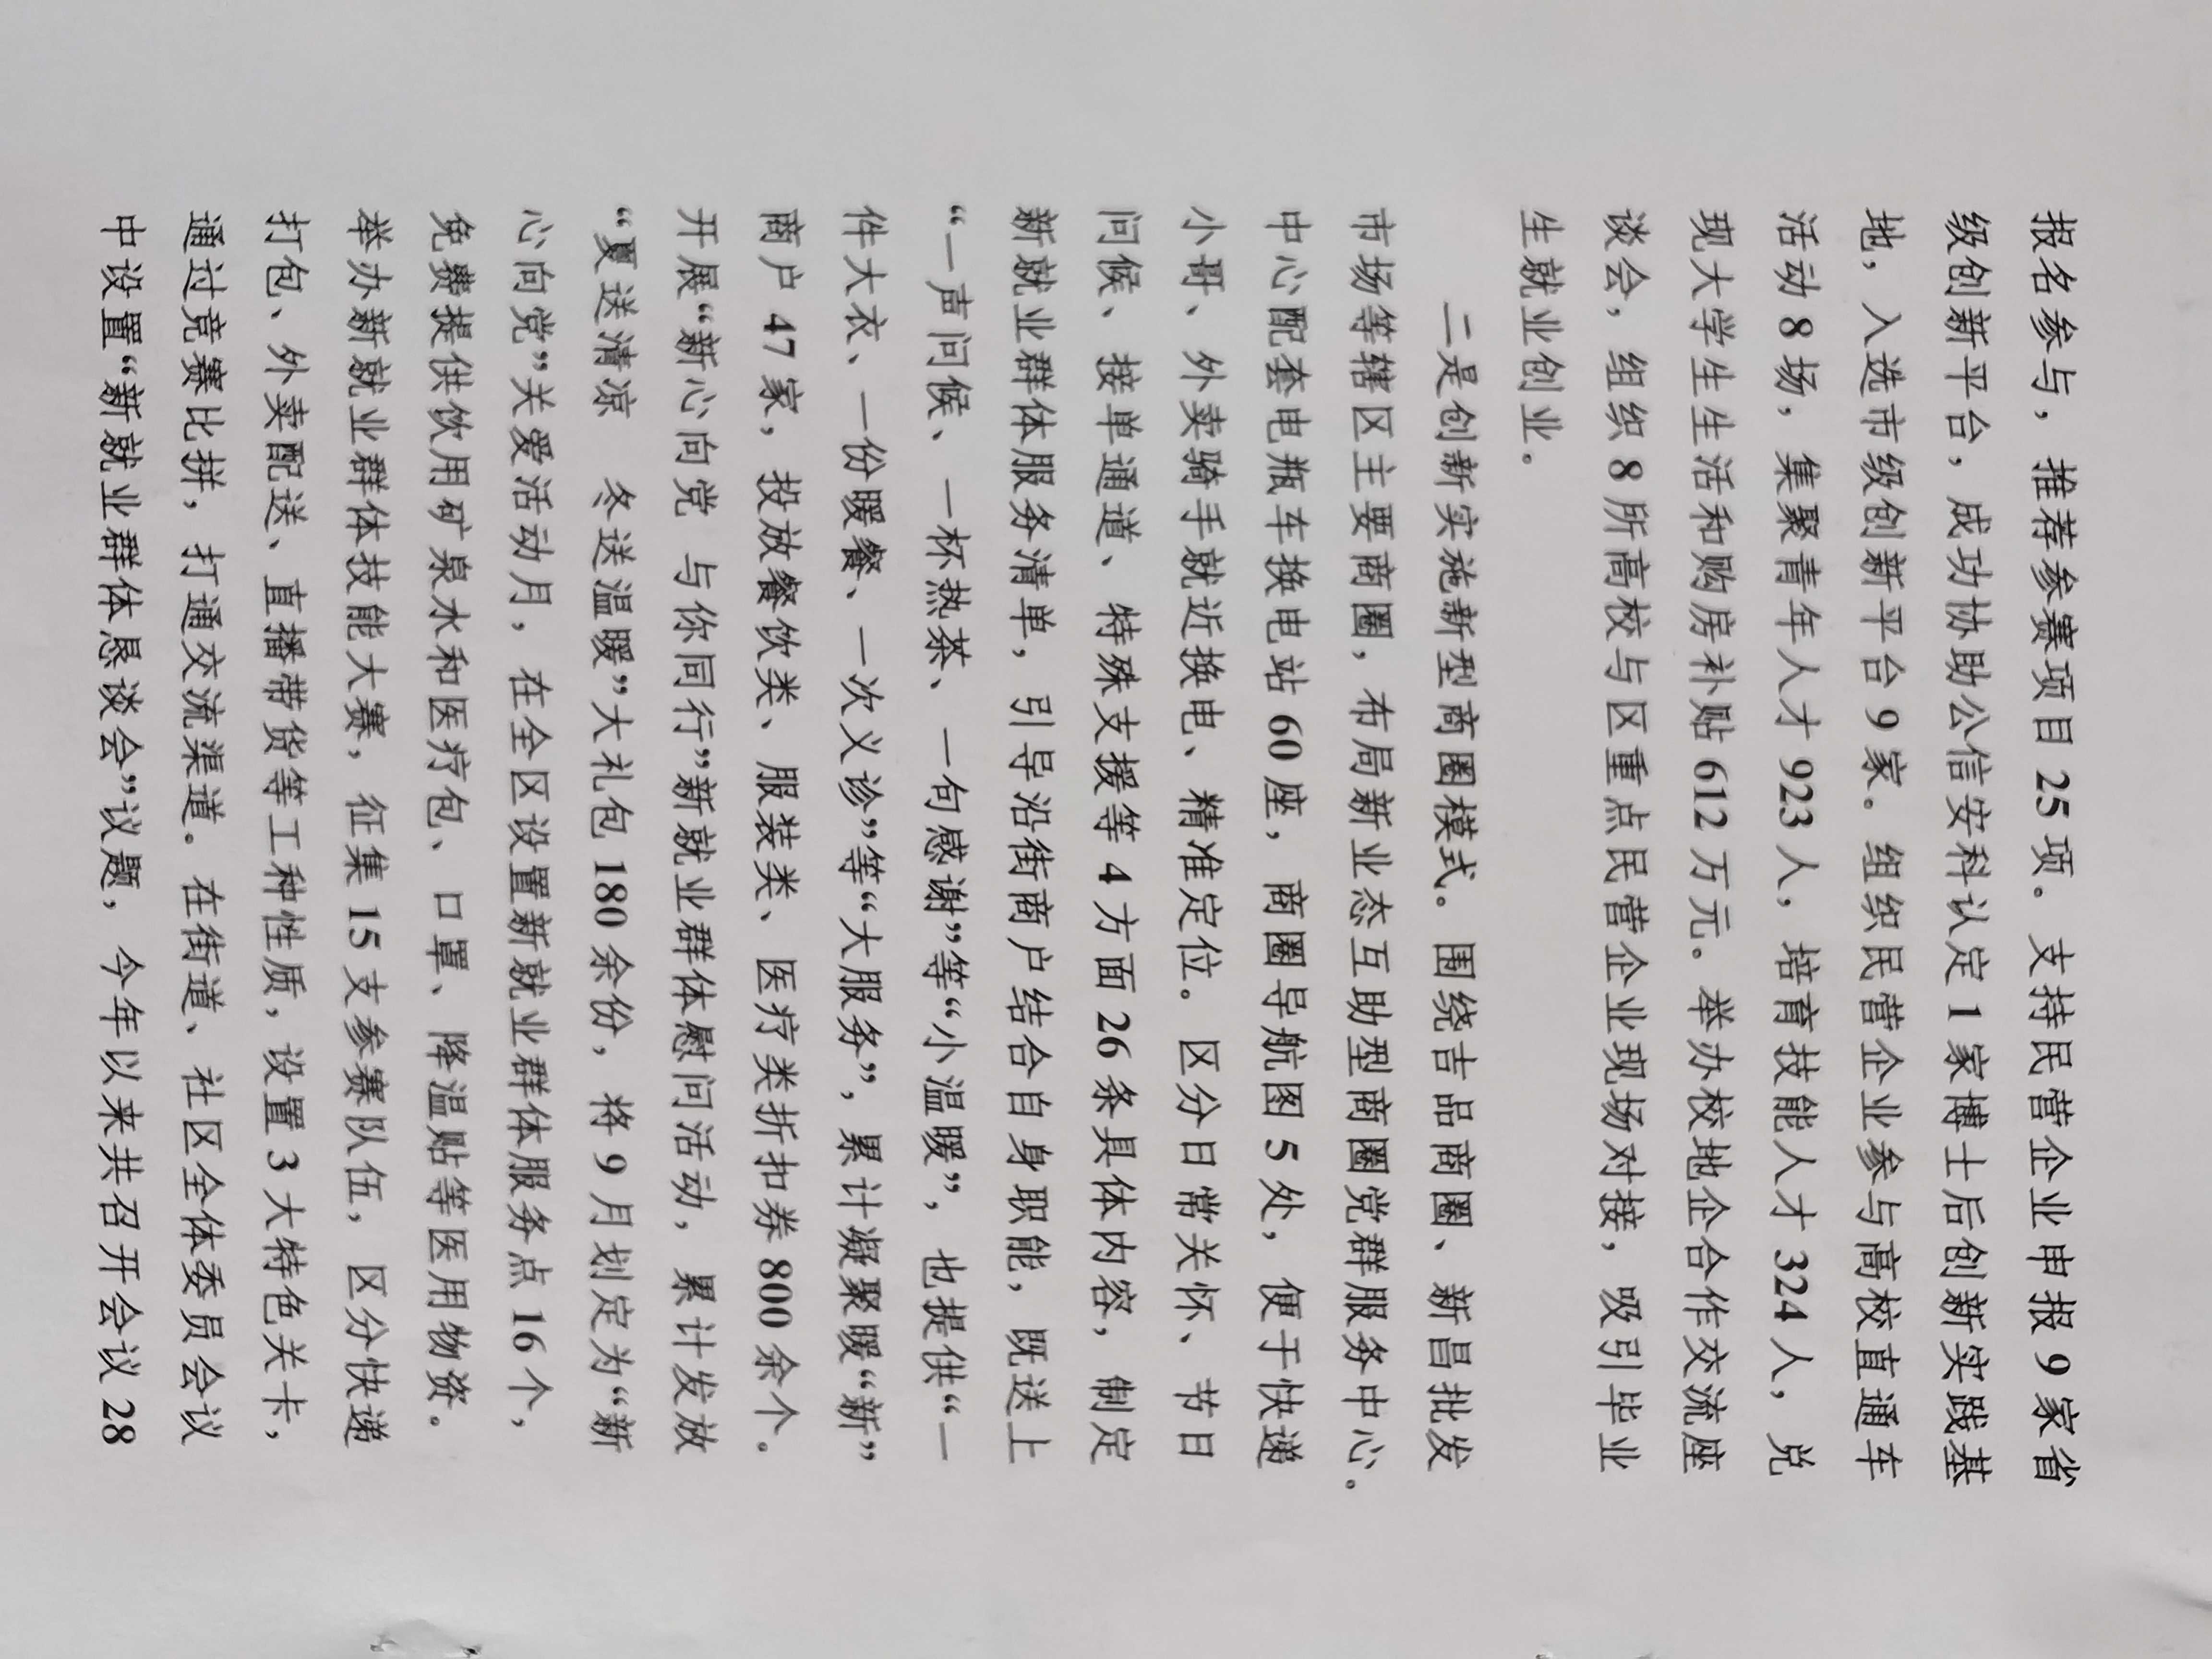 报名参与，推荐参赛项目 25 项。支持民营企业申报 9 家省
级创新平台，成功协助公信安科认定 1 家博士后创新实践基
地，入选市级创新平台 9 家。组织民营企业参与高校直通车
活动 8 场，集聚青年人才 923 人，培育技能人才 324 人，兑
现大学生生活和购房补贴 612 万元。举办校地企合作交流座
谈会，组织 8 所高校与区重点民营企业现场对接，吸引毕业
生就业创业。
二是创新实施新型商圈模式。围绕吉品商圈、新昌批发
市场等辖区主要商圈，布局新业态互助型商圈党群服务中心。
中心配套电瓶车换电站 60 座，商圈导航图 5 处，便于快递
小哥、外卖骑手就近换电、精准定位。区分日常关怀、节日
问候、接单通道、特殊支援等 4 方面 26 条具体内容，制定
新就业群体服务清单，引导沿街商户结合自身职能，既送上
“一声问候、一杯热茶、一句感谢”等“小温暖”，也提供“一
件大衣、一份暖餐、一次义诊”等“大服务”，累计凝聚暖“新”
商户 47 家，投放餐饮类、服装类、医疗类折扣券 800 余个。
开展“新心向党 与你同行”新就业群体慰问活动，累计发放
“夏送清凉 冬送温暖”大礼包 180 余份，将 9 月划定为“新
心向党”关爱活动月，在全区设置新就业群体服务点 16 个，
免费提供饮用矿泉水和医疗包、口罩、降温贴等医用物资。
举办新就业群体技能大赛，征集 15 支参赛队伍，区分快递
打包、外卖配送、直播带货等工种性质，设置 3 大特色关卡，
通过竞赛比拼，打通交流渠道。在街道、社区全体委员会议
中设置“新就业群体恳谈会”议题，今年以来共召开会议 28